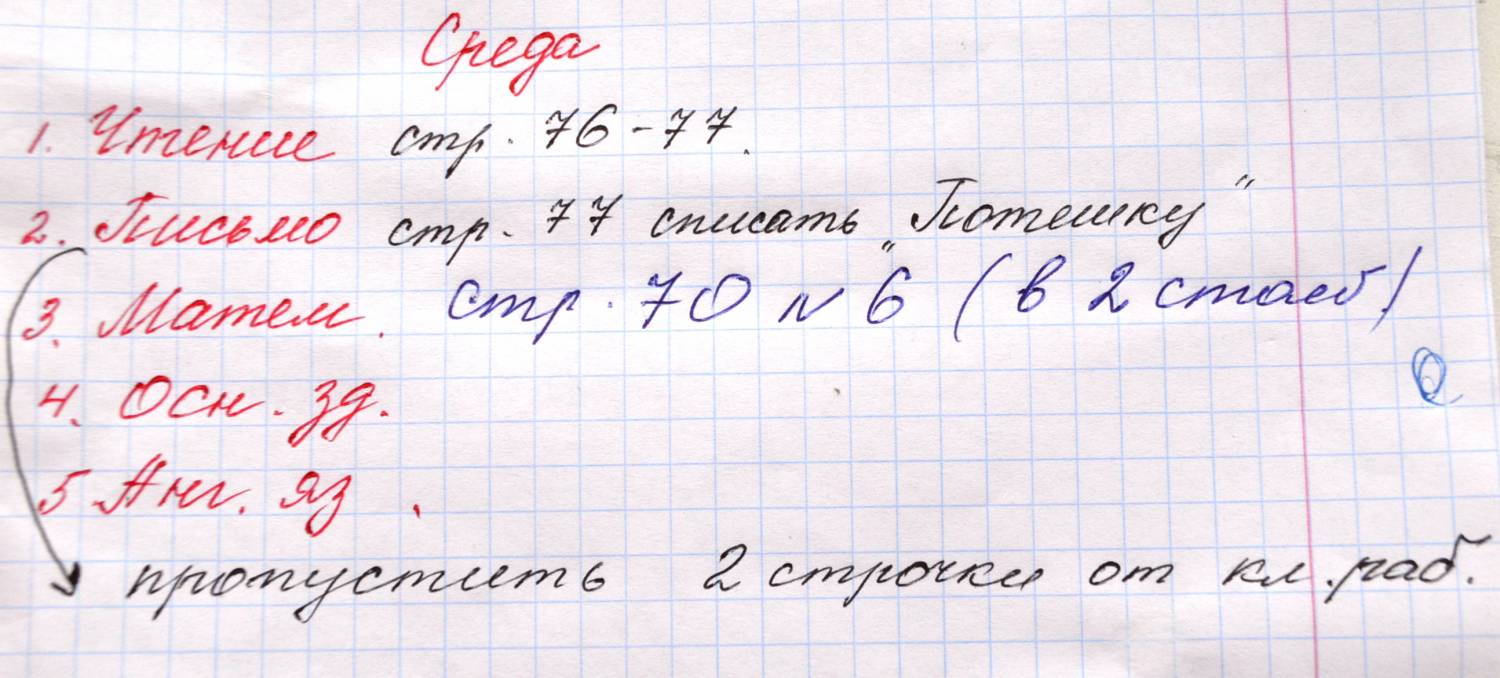 Среда
1. Чтение стр. 76-77.
2. Письмо стр. 77 списать „Потешку"
3. Матем. стр. 70 № 6 (в 2 столб)
4. Осн. зд.
5 Анг. яз.
пропустить 2 строчки от кл. раб.